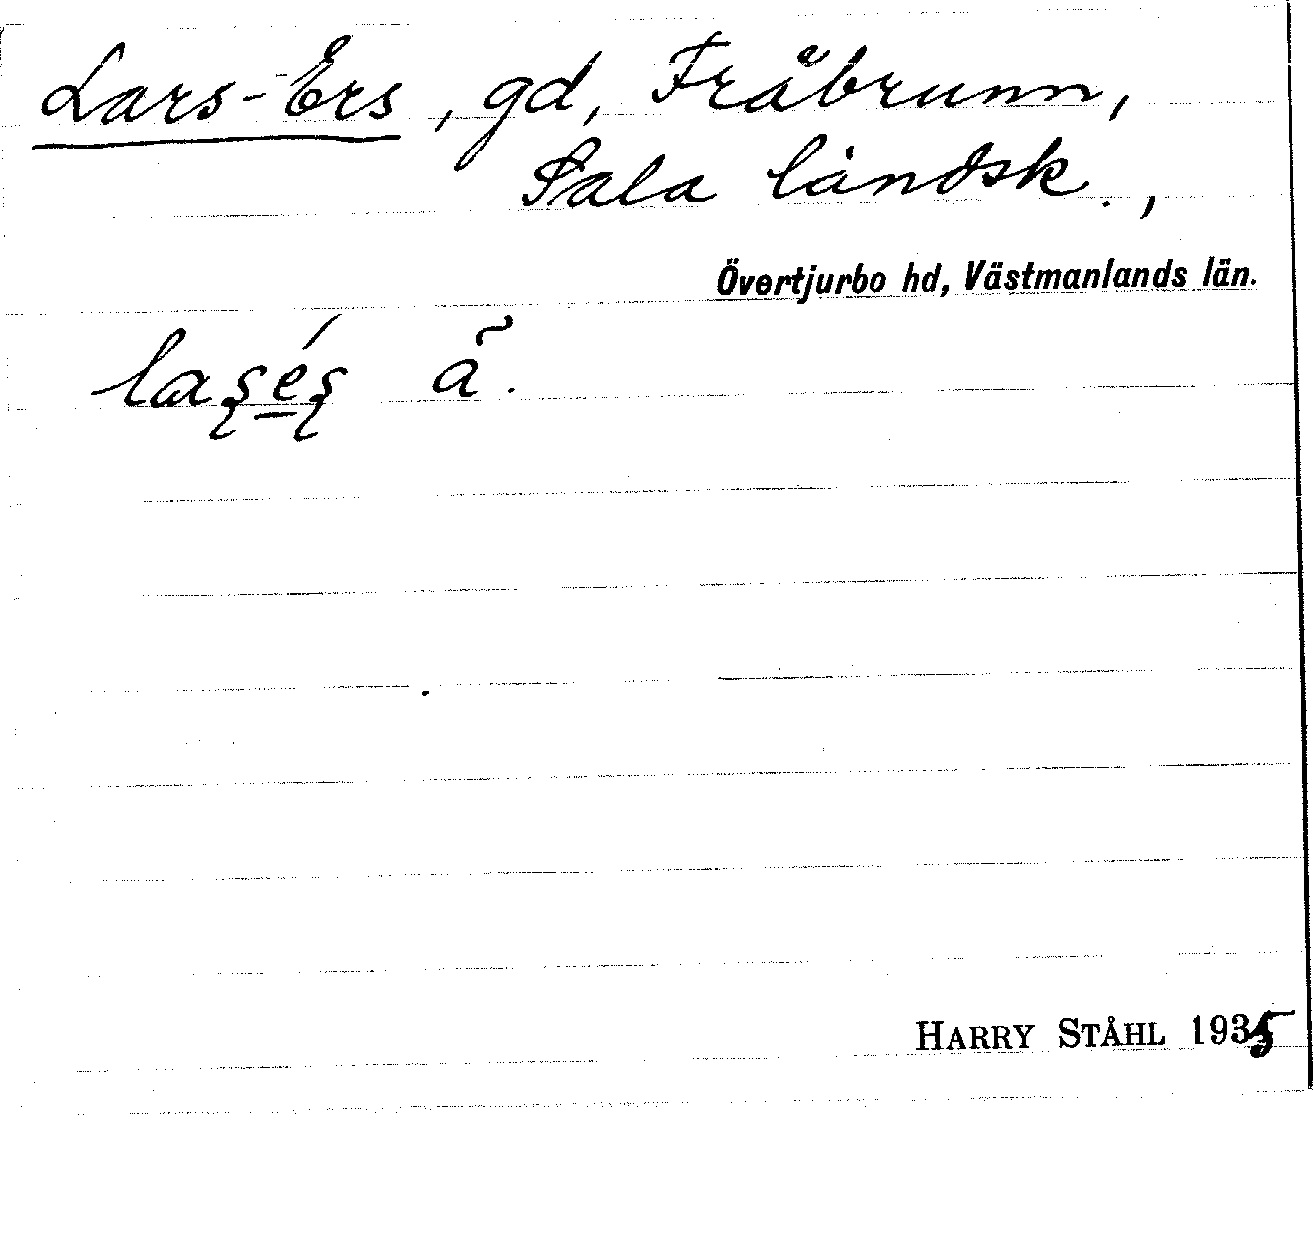 Lars-Ers, gd, Fråbrunn,
Sala landsk.,
Övertjurbo hd, Västmanlands län.
HARRY STÅHL 1935